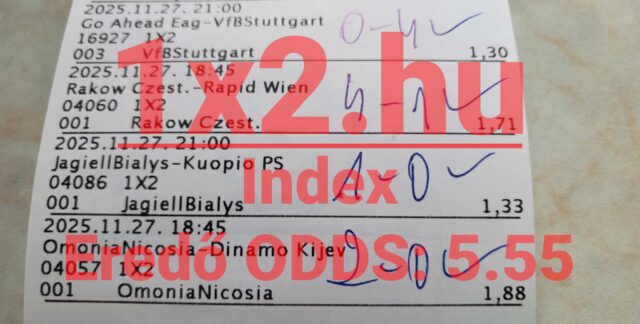 2025.11.27. 21:00
Go Ahead Eag-VfBStuttgart
0-4 ✓
16927 1X2
003 VfBStuttgart 1,30
2025.11.27. 18:45
Rakow Czest.-Rapid Wien
04060 1X2
4-1 ✓
001 Rakow Czest. 1,71
2025.11.27. 21:00
JagiellBialys-Kuopio PS
1-0 ✓
04086 1X2
001 JagiellBialys 1,33
2025.11.27. 18:45
OmoniaNicosia-Dinamo Kijev
2-0 ✓
04057 1X2
001 OmoniaNicosia 1,88
1x2.hu
Index
Eredő ODDS: 5.55